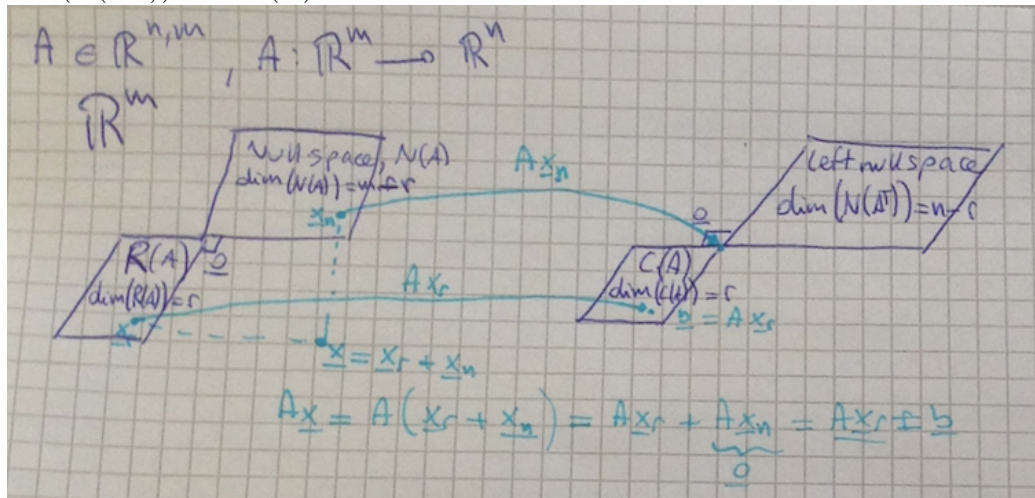 A ∈ ℝ^{n,m}, A: ℝ^m → ℝ^n
ℝ^m
Nullspace, N(A)
dim(N(A)) = m-r
x_n
A x_n
left nullspace
dim(N(A^T)) = n-r
0
R(A)
dim(R(A)) = r
0
x_r
A x_r
C(A)
dim(C(A)) = r
b = A x_r
x = x_r + x_n
A x = A(x_r + x_n) = A x_r + A x_n = A x_r = b
0